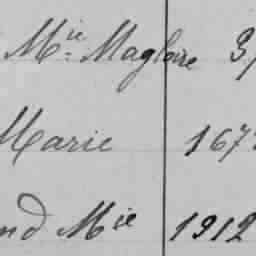 Mie Magloire 3,
Marie 167
nd Mie 1912